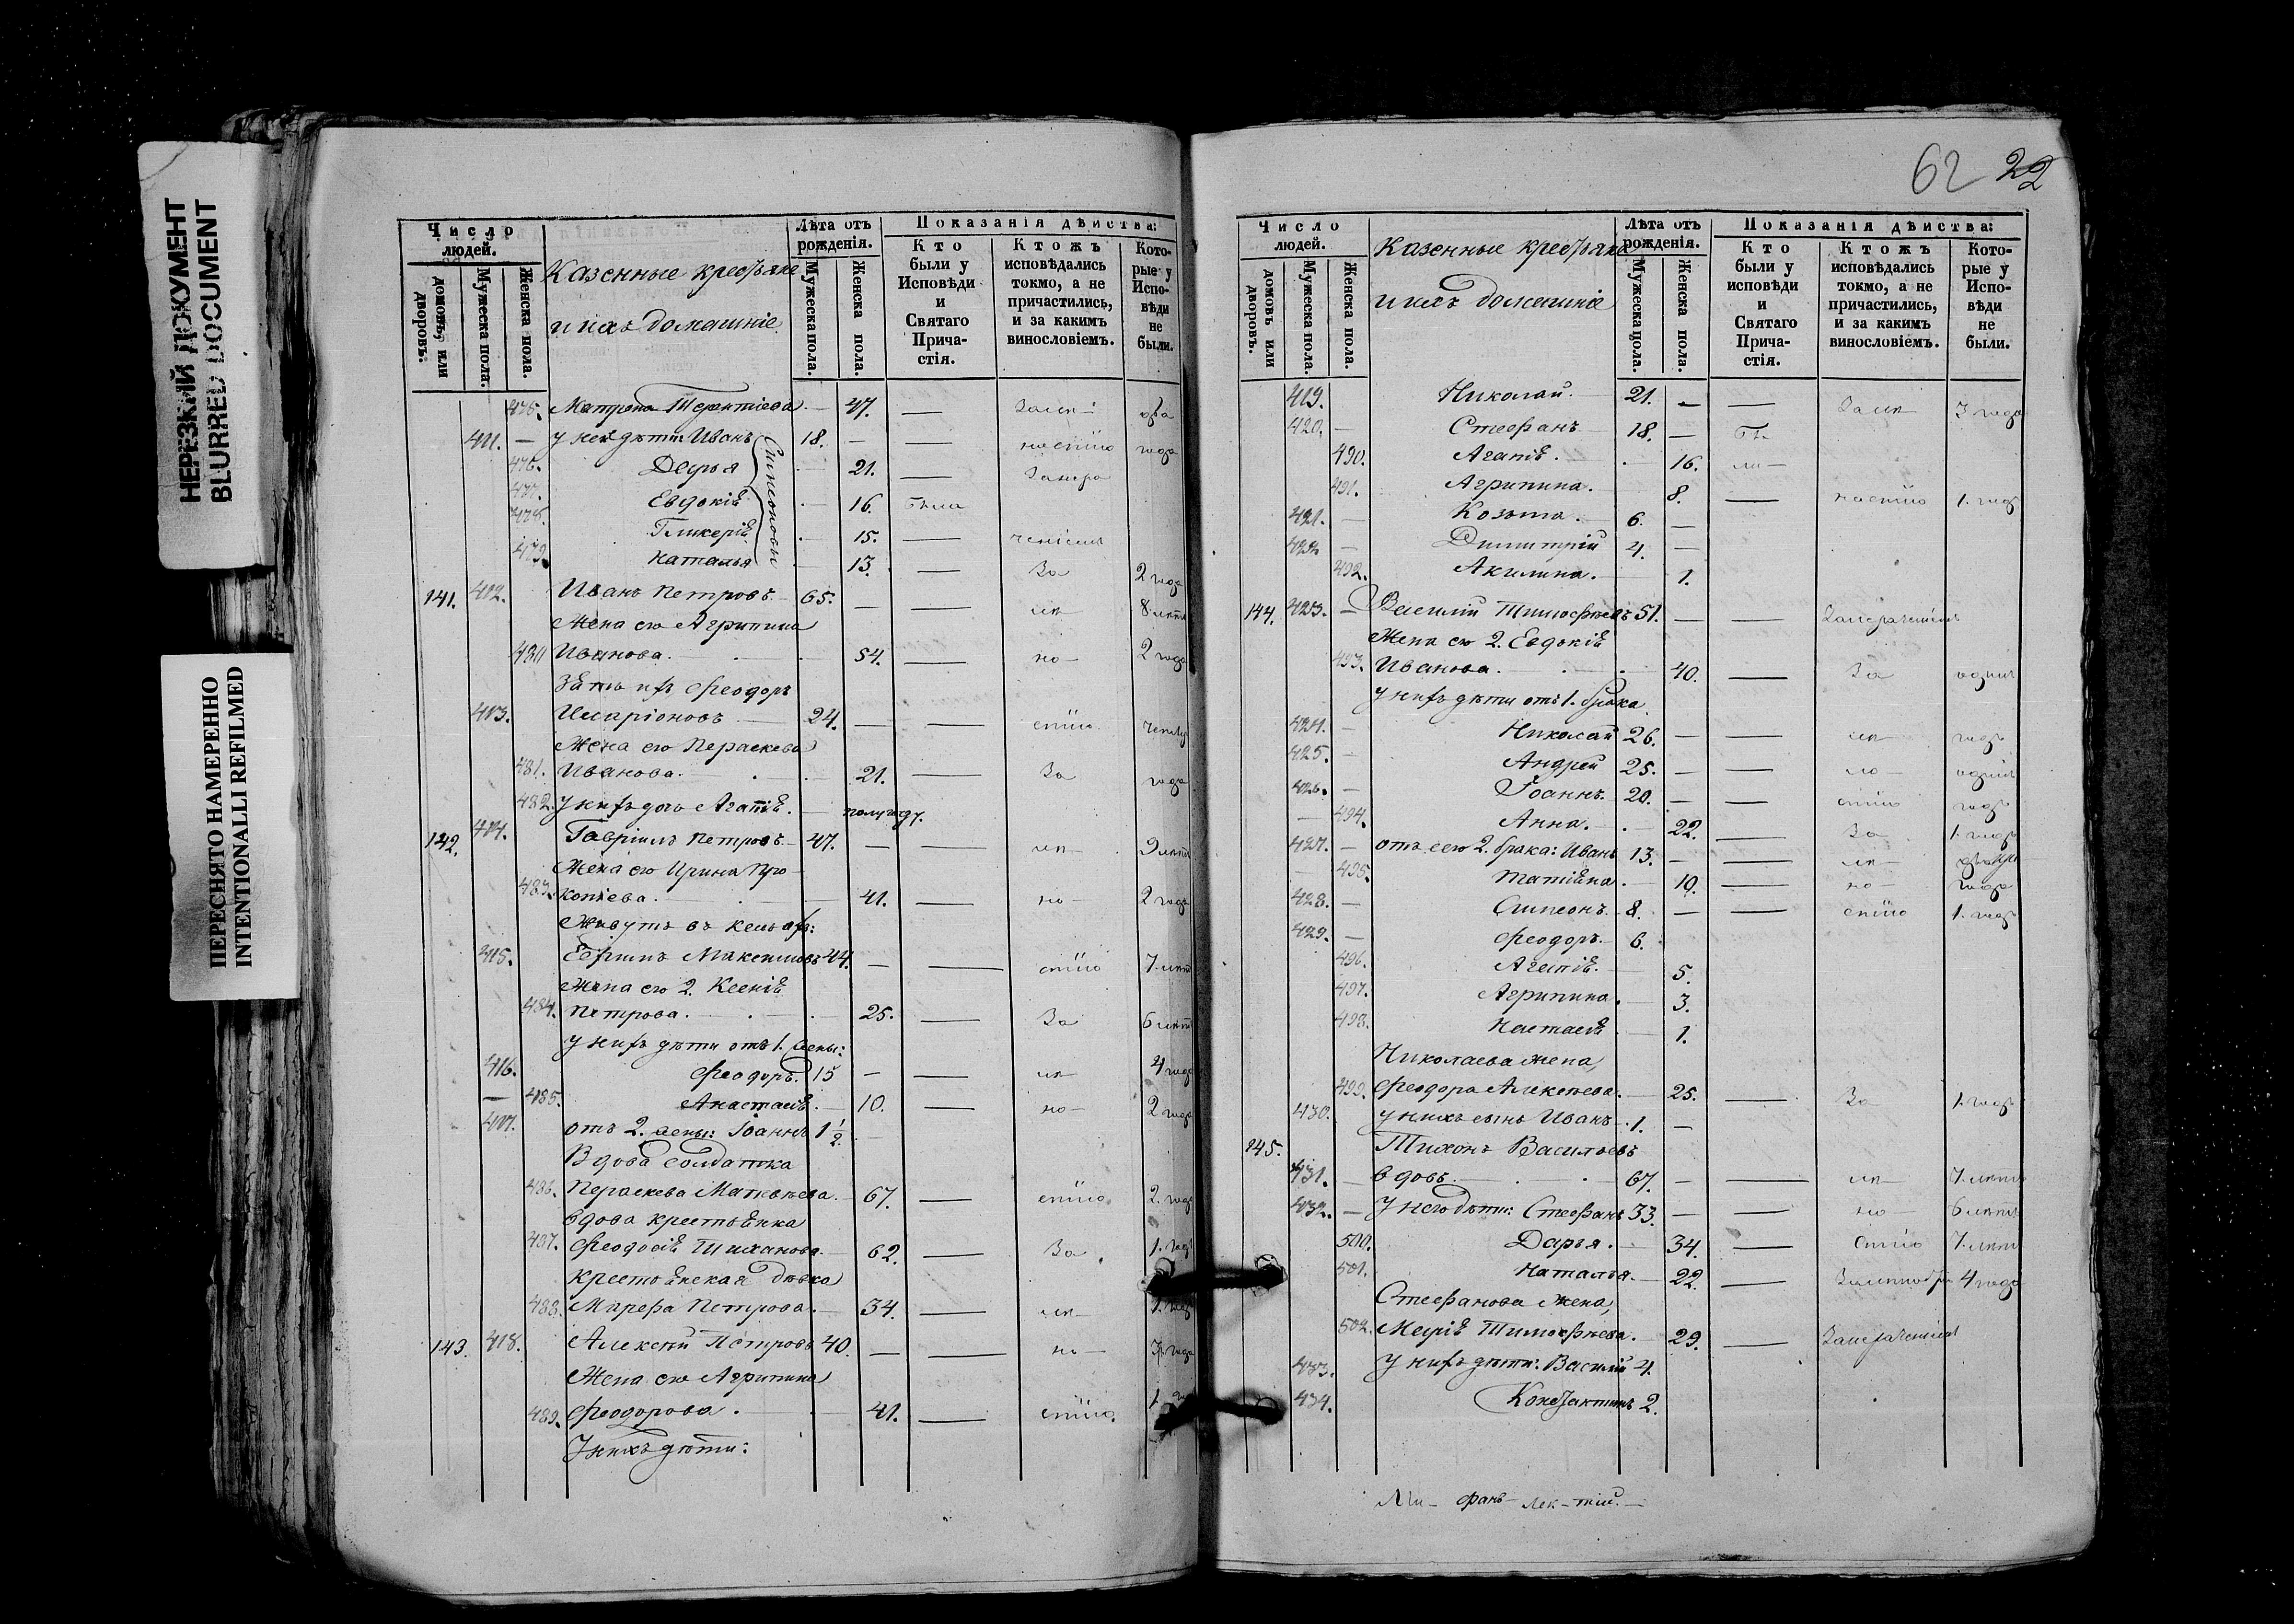 НЕРЕЗКИЙ ДОКУМЕНТ
BLURRED DOCUMENT
ПЕРЕСНЯТО НАМЕРЕННО
INTENTIONALLI REFILMED
Число людей.
домовъ или дворовъ.
Мужеска пола.
Женска пола.
Казенные крестьяне
и ихъ домашніе
Лѣта отъ рожденія.
Мужеска пола.
Женска пола.
Показанія дѣйства:
Кто были у Исповѣди и Святаго Причастія.
Ктожъ исповѣдались токмо, а не причастились, и за какимъ винословіемъ.
Которые у Исповѣди не были.
475. Матрона Терентіева. — 47. — два
411. — у ней дѣти: Иванъ 18. — — года
476. Дарья 21. —
477. Евдокія 16. была
478. Гликерія 15. —
479. Наталья 13. — За 2 года
Симеоновы
141. 412. Иванъ Петровъ. 65. — — 8 лѣтъ
Жена его Агрипина
480 Иванова. 54. — но— 2 года
Зять ихъ Феодоръ
413. Иларіоновъ 24. — —
Жена его Параскева
481. Иванова. 21. — За года
482. у нихъ дочь Агапія. — полугоду.
142. 414. Гавріилъ Петровъ. 47. — — 9 лѣтъ
Жена его Ирина Про-
483. копіева. 41. — но— 2 года
Живутъ въ кельяхъ:
415. Ефимъ Максимовъ 44. — — 7 лѣтъ
Жена его 2. Ксенія
484. Петрова. 25. — За 6 лѣтъ
у нихъ дѣти отъ 1. жены:
416. Феодоръ. 15 — — 4 года
— 485. Анастасія. — 10. — но— 2 года
417. отъ 2. жены: Іоаннъ 1 ½
Вдова солдатка
486. Параскева Матвѣева. 67. — 2. года
вдова крестьянка
487. Феодосія Тихонова. 62. — За 1. годъ
крестьянская дѣвка
488. Марѳа Петрова. 34. — 1. годъ
143. 418. Алексѣй Петровъ 40. — — но— 3. года
Жена его Агрипина
489. Феодорова. 41. —
У нихъ дѣти:
62 22
Число людей.
домовъ или дворовъ.
Мужеска пола.
Женска пола.
Казенные крестьяне
и ихъ домашніе
Лѣта отъ рожденія.
Мужеска пола.
Женска пола.
Показанія дѣйства:
Кто были у исповѣди и Святаго Причастія.
Ктожъ исповѣдались токмо, а не причастились, и за какимъ винословіемъ.
Которые у Исповѣди не были.
419. Николай. 21. — — 3 года
420. — Стефанъ 18. —
490. Агапія. 16.
491. Агрипина. 8. — 1. годъ
421. — Козьма. 6. —
422 — Димитрій 4. —
492. Акилина. 1.
144. 423. — Василій Тимофѣевъ 51. — —
Жена его 2. Евдокія
493. Иванова. 40. — За одинъ
у нихъ дѣти отъ 1. брака
424. — Николай 26. — — годъ
425. — Андрей 25. — — одинъ
426. — Іоаннъ. 20. — — годъ
— 494. Анна. 22. — За 1. годъ
427. — отъ сего 2. брака: Иванъ 13. — —
— 495. Татіяна. 10. — но— года
428. — Симеонъ. 8. — — 1. годъ
429. — Феодоръ. 6.
496. Агапія. 5.
497. Агрипина. 3.
498. Настасія 1.
Николаева жена,
499. Феодора Алексѣева. 25. — За 1. годъ
430. у нихъ сынъ Иванъ. 1. —
145. Тихонъ Васильевъ
431. — вдовъ. 67. — — 7 лѣтъ
432. — У него дѣти: Стефанъ 33. — — но— 6 лѣтъ
500. Дарья. 34. — 7 лѣтъ
501. Наталья. 22. — 4 года
Стефанова жена,
502. Марія Тимофѣева. 29. —
433. У нихъ дѣти: Василій 4.
434. Константинъ 2.